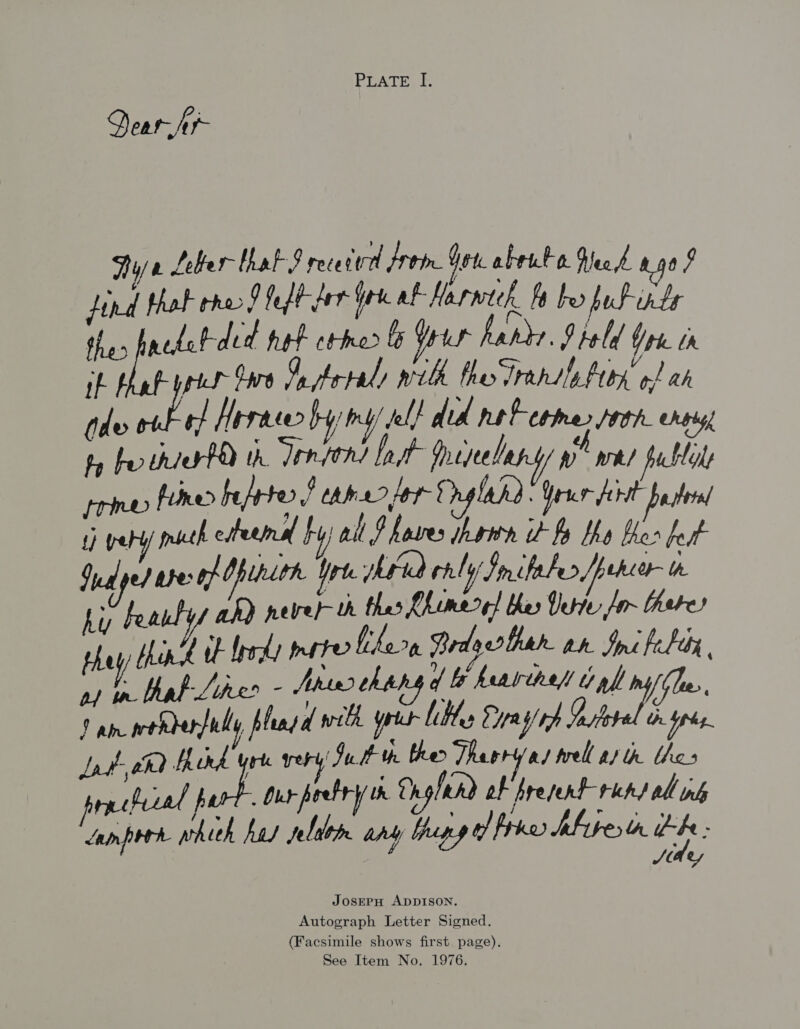 PLATE I.
Dear Sir
By a Letter that I received from You about a Week ago I
find that one I left for You at Harwich to be put into
the packet did not come to Your hands. I told You in
it that your two Pastorals with the Translation of an
Ode out of Horace by my self did not come soon enough
to be inserted in Tonson's last Miscellany wch was publish
some time before I came for England. Your first pastoral
is very much esteemed by all I have shown it to tho the best
Judges are of Opinion You should only Imitate Spencer in
his beautys and never in the Rhime of the Verse for there
they think it looks more like a Bodge than an Imitation,
as in that Line - since chang'd to heaviness is all my Glee.
I am wonderfully pleas'd with your little Essay on Pastoral in your
last and think you very Just in the Theory as well as in the
practical part. Our poetry in England at present runs all into
Lampoon which has seldom any thing of true Satire in it be-
sides
JOSEPH ADDISON.
Autograph Letter Signed.
(Facsimile shows first page).
See Item No. 1976.